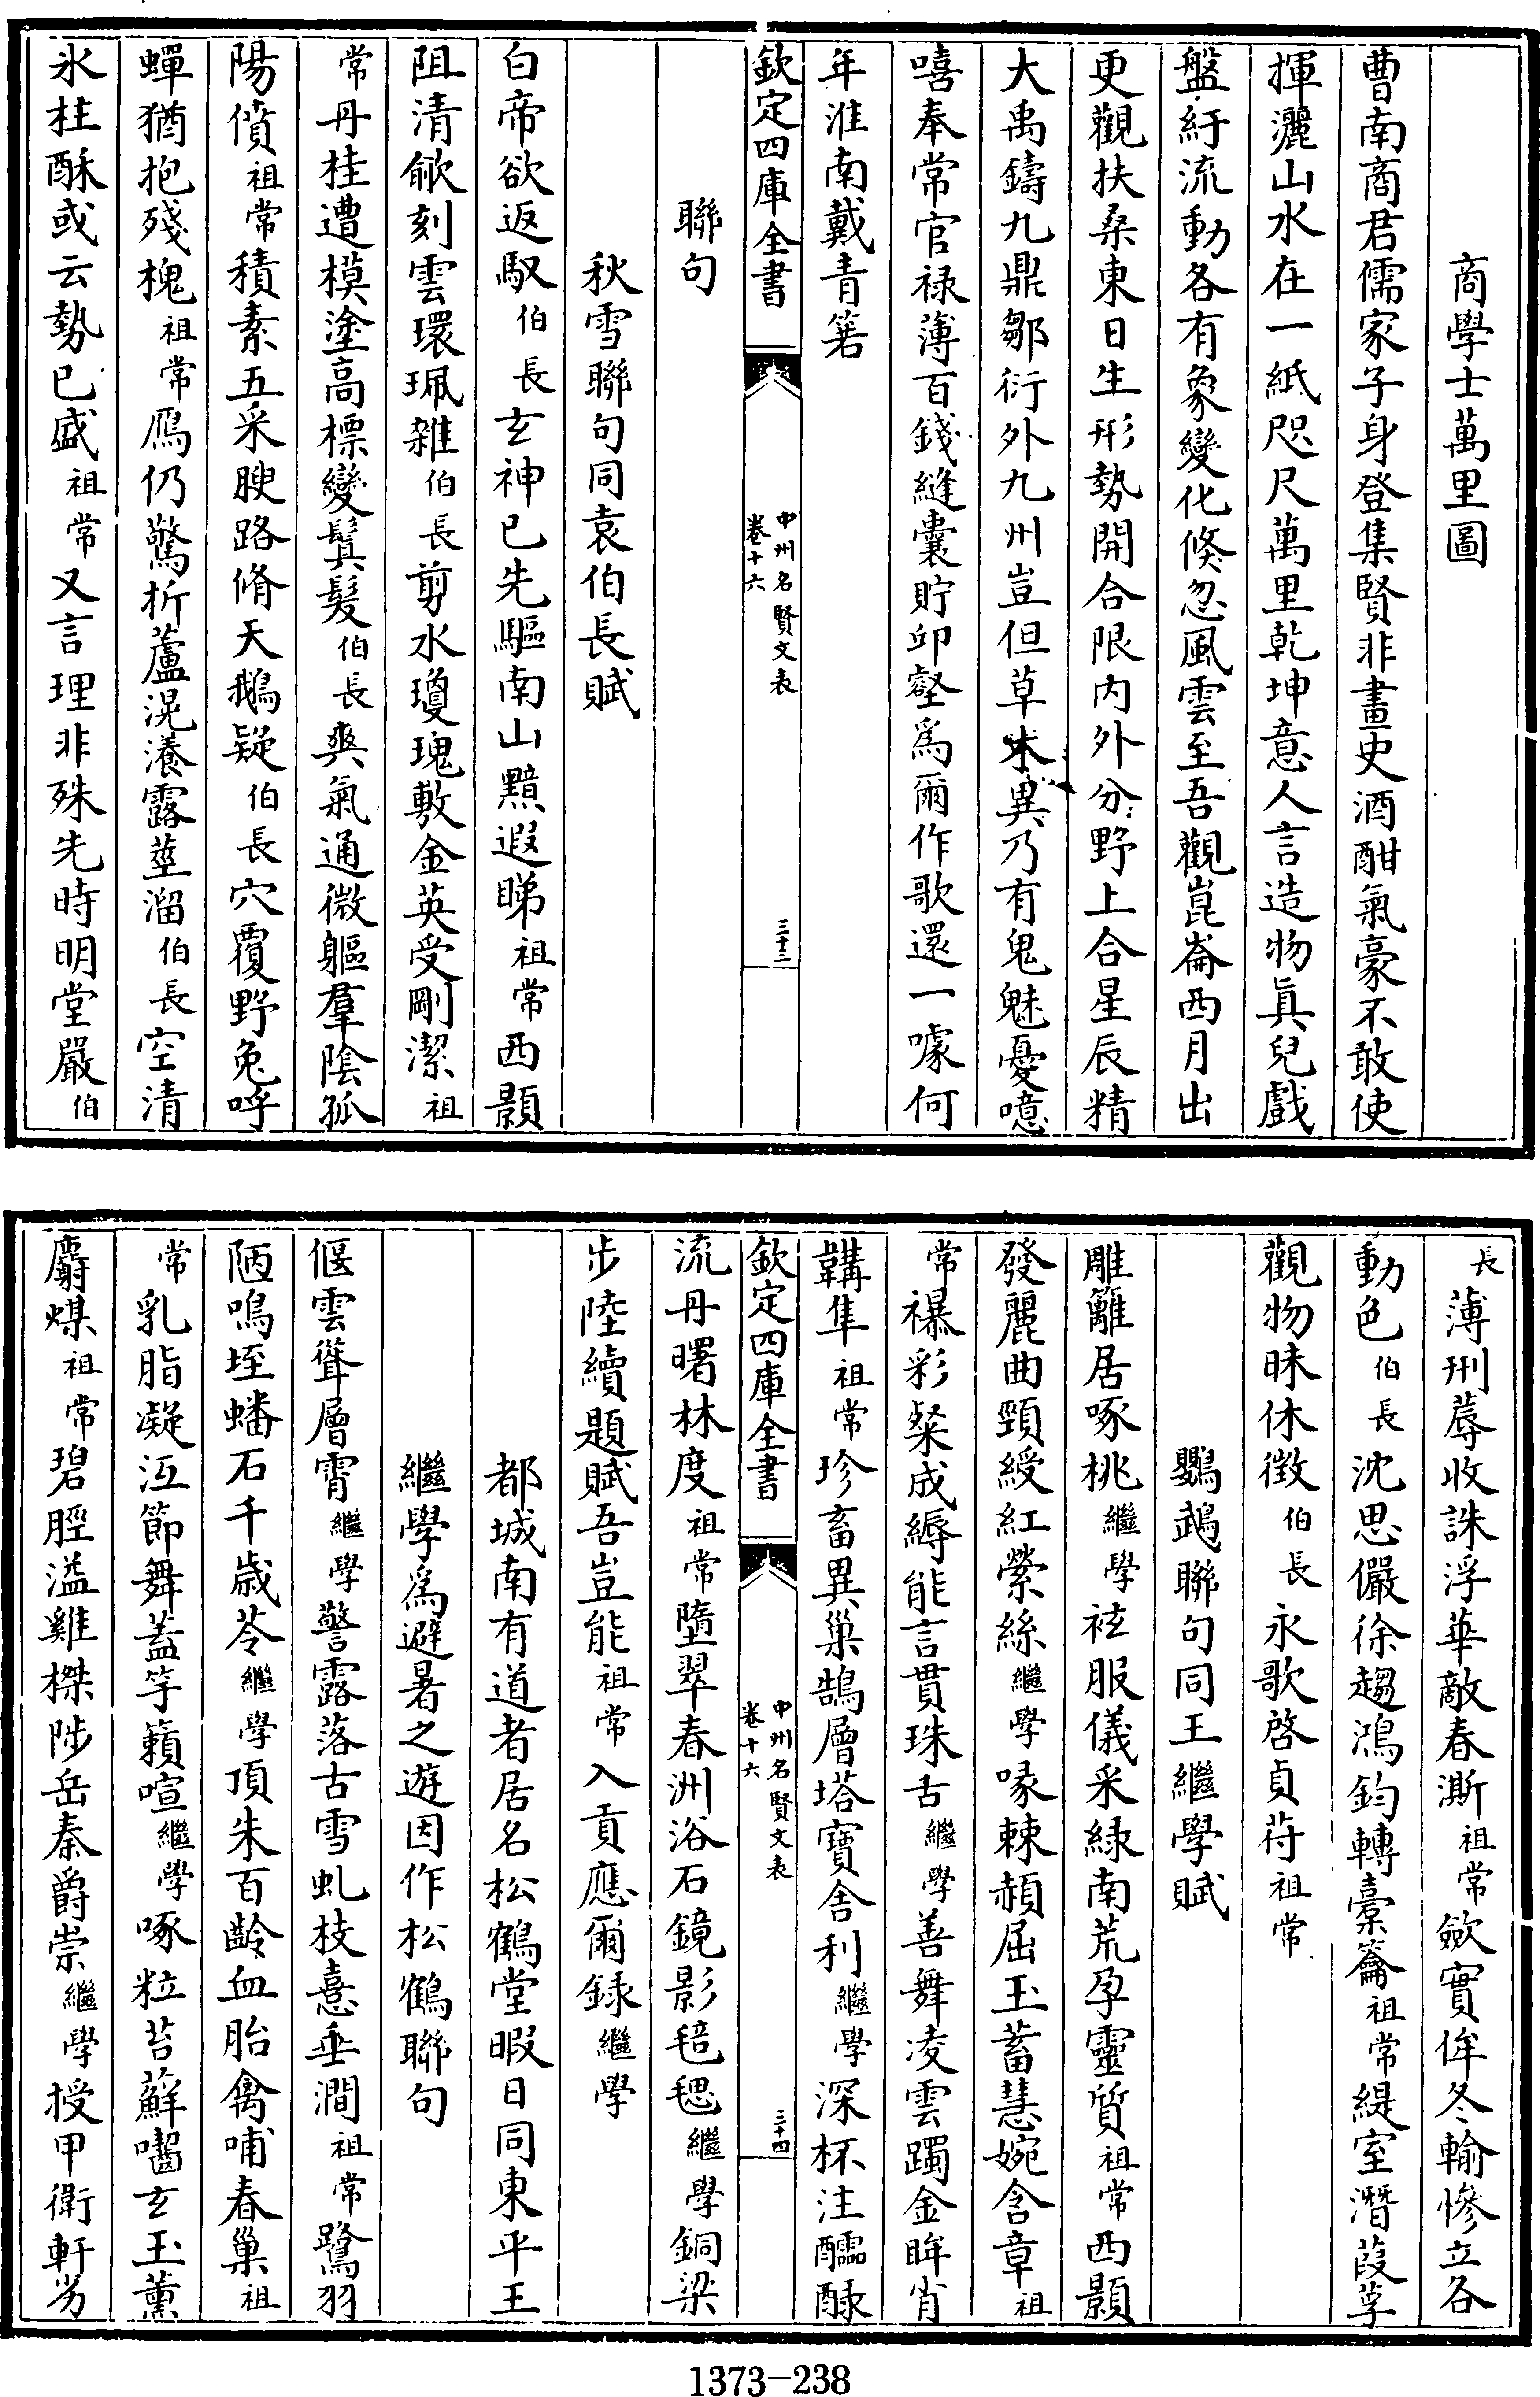 商學士萬里圖
曹南商君儒家子身登集賢非畫史酒酣氣豪不敢使
揮灑山水在一紙咫尺萬里乾坤意人言造物眞兒戲
盤紆流動各有象變化倏忽風雲至吾觀崑崙西月出
更觀扶桑東日生形勢開合限内外分野上合星辰精
大禹鑄九鼎鄒衍外九州豈但草木異乃有鬼魅憂噫
嘻奉常官禄薄百錢縫囊貯卯壑爲爾作歌還一噱何
年淮南戴青箬
欽定四庫全書
中州名賢文表
卷十六
三十三
聯句
秋雪聯句同袁伯長賦
白帝欲返馭伯長玄神已先驅南山黯遐睇祖常西顥
阻清歈刻雲環珮雜伯長剪水瓊瑰敷金英受剛潔祖
常丹桂遭模塗高標變鬒髮伯長爽氣通微軀羣陰孤
陽僨祖常積素五采腴路脩天鵝疑伯長穴覆野兔呼
蟬猶抱殘槐祖常鴈仍驚折蘆滉瀁露莖溜伯長空清
氷柱酥或云勢已盛祖常又言理非殊先時明堂嚴伯
長薄刑蓐收誅浮華敵春澌祖常歛實侔冬輸慘立各
動色伯長沈思儼徐趨鴻鈞轉橐籥祖常緹室潛葭莩
觀物昧休徴伯長永歌啓貞苻祖常
鸚鵡聯句同王繼學賦
雕籬居啄桃繼學袨服儀采緑南荒孕靈質祖常西顥
發麗曲頸綬紅縈絲繼學喙棘頳屈玉蓄慧婉含章祖
常襮彩粲成縟能言貫珠舌繼學善舞凌雲躅金眸肖
韝隼祖常珍畜異巢鵠層塔寶舍利繼學深杯注醽醁
欽定四庫全書
中州名賢文表
卷十六
三十四
流丹曙林度祖常墮翠春洲浴石鏡影毰毸繼學銅梁
步陸續題賦吾豈能祖常入貢應爾録繼學
都城南有道者居名松鶴堂暇日同東平王
繼學爲避暑之遊因作松鶴聯句
偃雲聳層霄繼學警露落古雪虬枝憙垂澗祖常鷺羽
陋鳴垤蟠石千歳苓繼學頂朱百齡血胎禽哺春巢祖
常乳脂凝沍節舞蓋竽籟喧繼學啄粒苔蘚囓玄玉薰
麝煤祖常碧脛溢雞桀陟岳秦爵崇繼學授甲衛軒劣
1373-238